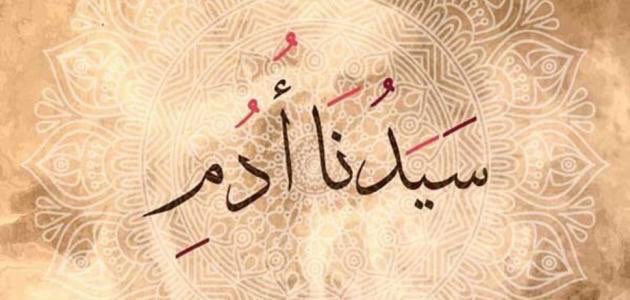 سَيَدُنَا أُدُمِ